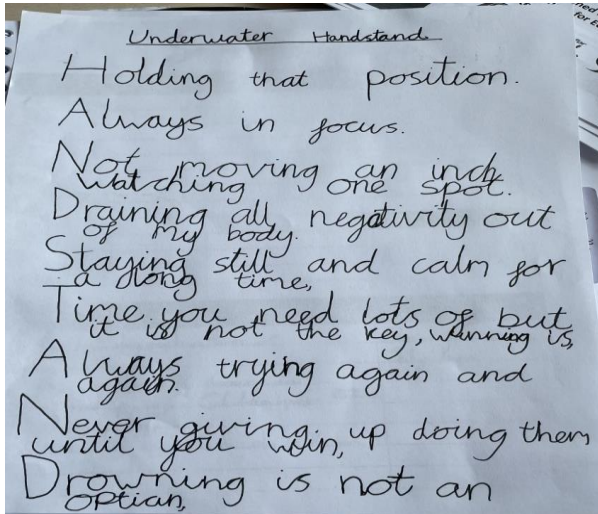 Underwater Handstand
Holding that position.
Always in focus.
Not moving an inch
watching one spot.
Draining all negativity out
of my body.
Staying still and calm for
a long time,
Time you need lots of but
it is not the key, winning is,
Always trying again and
again.
Never giving up doing them
until you win,
Drowning is not an
option,